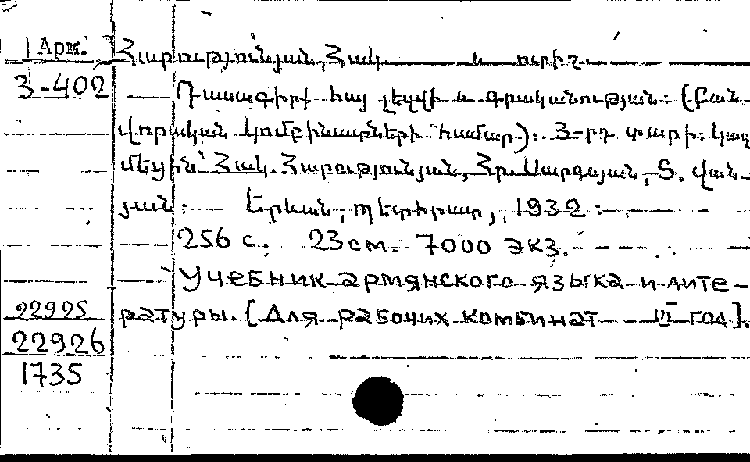 Арм.
Հարությունյան, Հակ. և ուրիշ.
3-402
Դասագիրք հայ լեզվի և գրականության: (Բան-
վորական կոմբինատների համար): 3-րդ տարի. Կազ
մեցին՝ Հակ. Հարությունյան, Հր. Սարգսյան, Տ. Վան-
յան: Երևան, պետհրատ, 1932:
256 с. 23см. 7000 экз.
Учебник армянского языка и лите-
22925
ратуры. [Для рабочих комбинат III год].
22926
1735